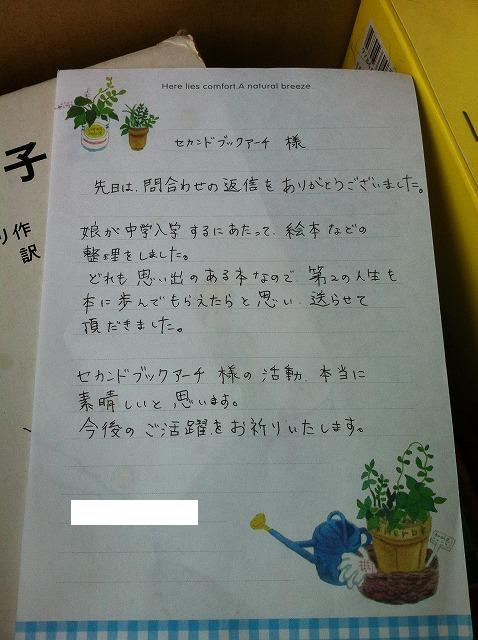 Here lies comfort. A natural breeze
セカンドブックアーチ 様
先日は、問合わせの返信を ありがとうございました。
娘が 中学入学 するにあたって、絵本 などの
整理をしました。
どれも 思い出のある本なので、第2の人生も
本に歩んでもらえたらと思い、送らせて
頂だきました。
セカンドブックアーチ 様の 活動、本当に
素晴しいと 思います。
今後の ご活躍を お祈りいたします。
子
り作
訳
Herbs